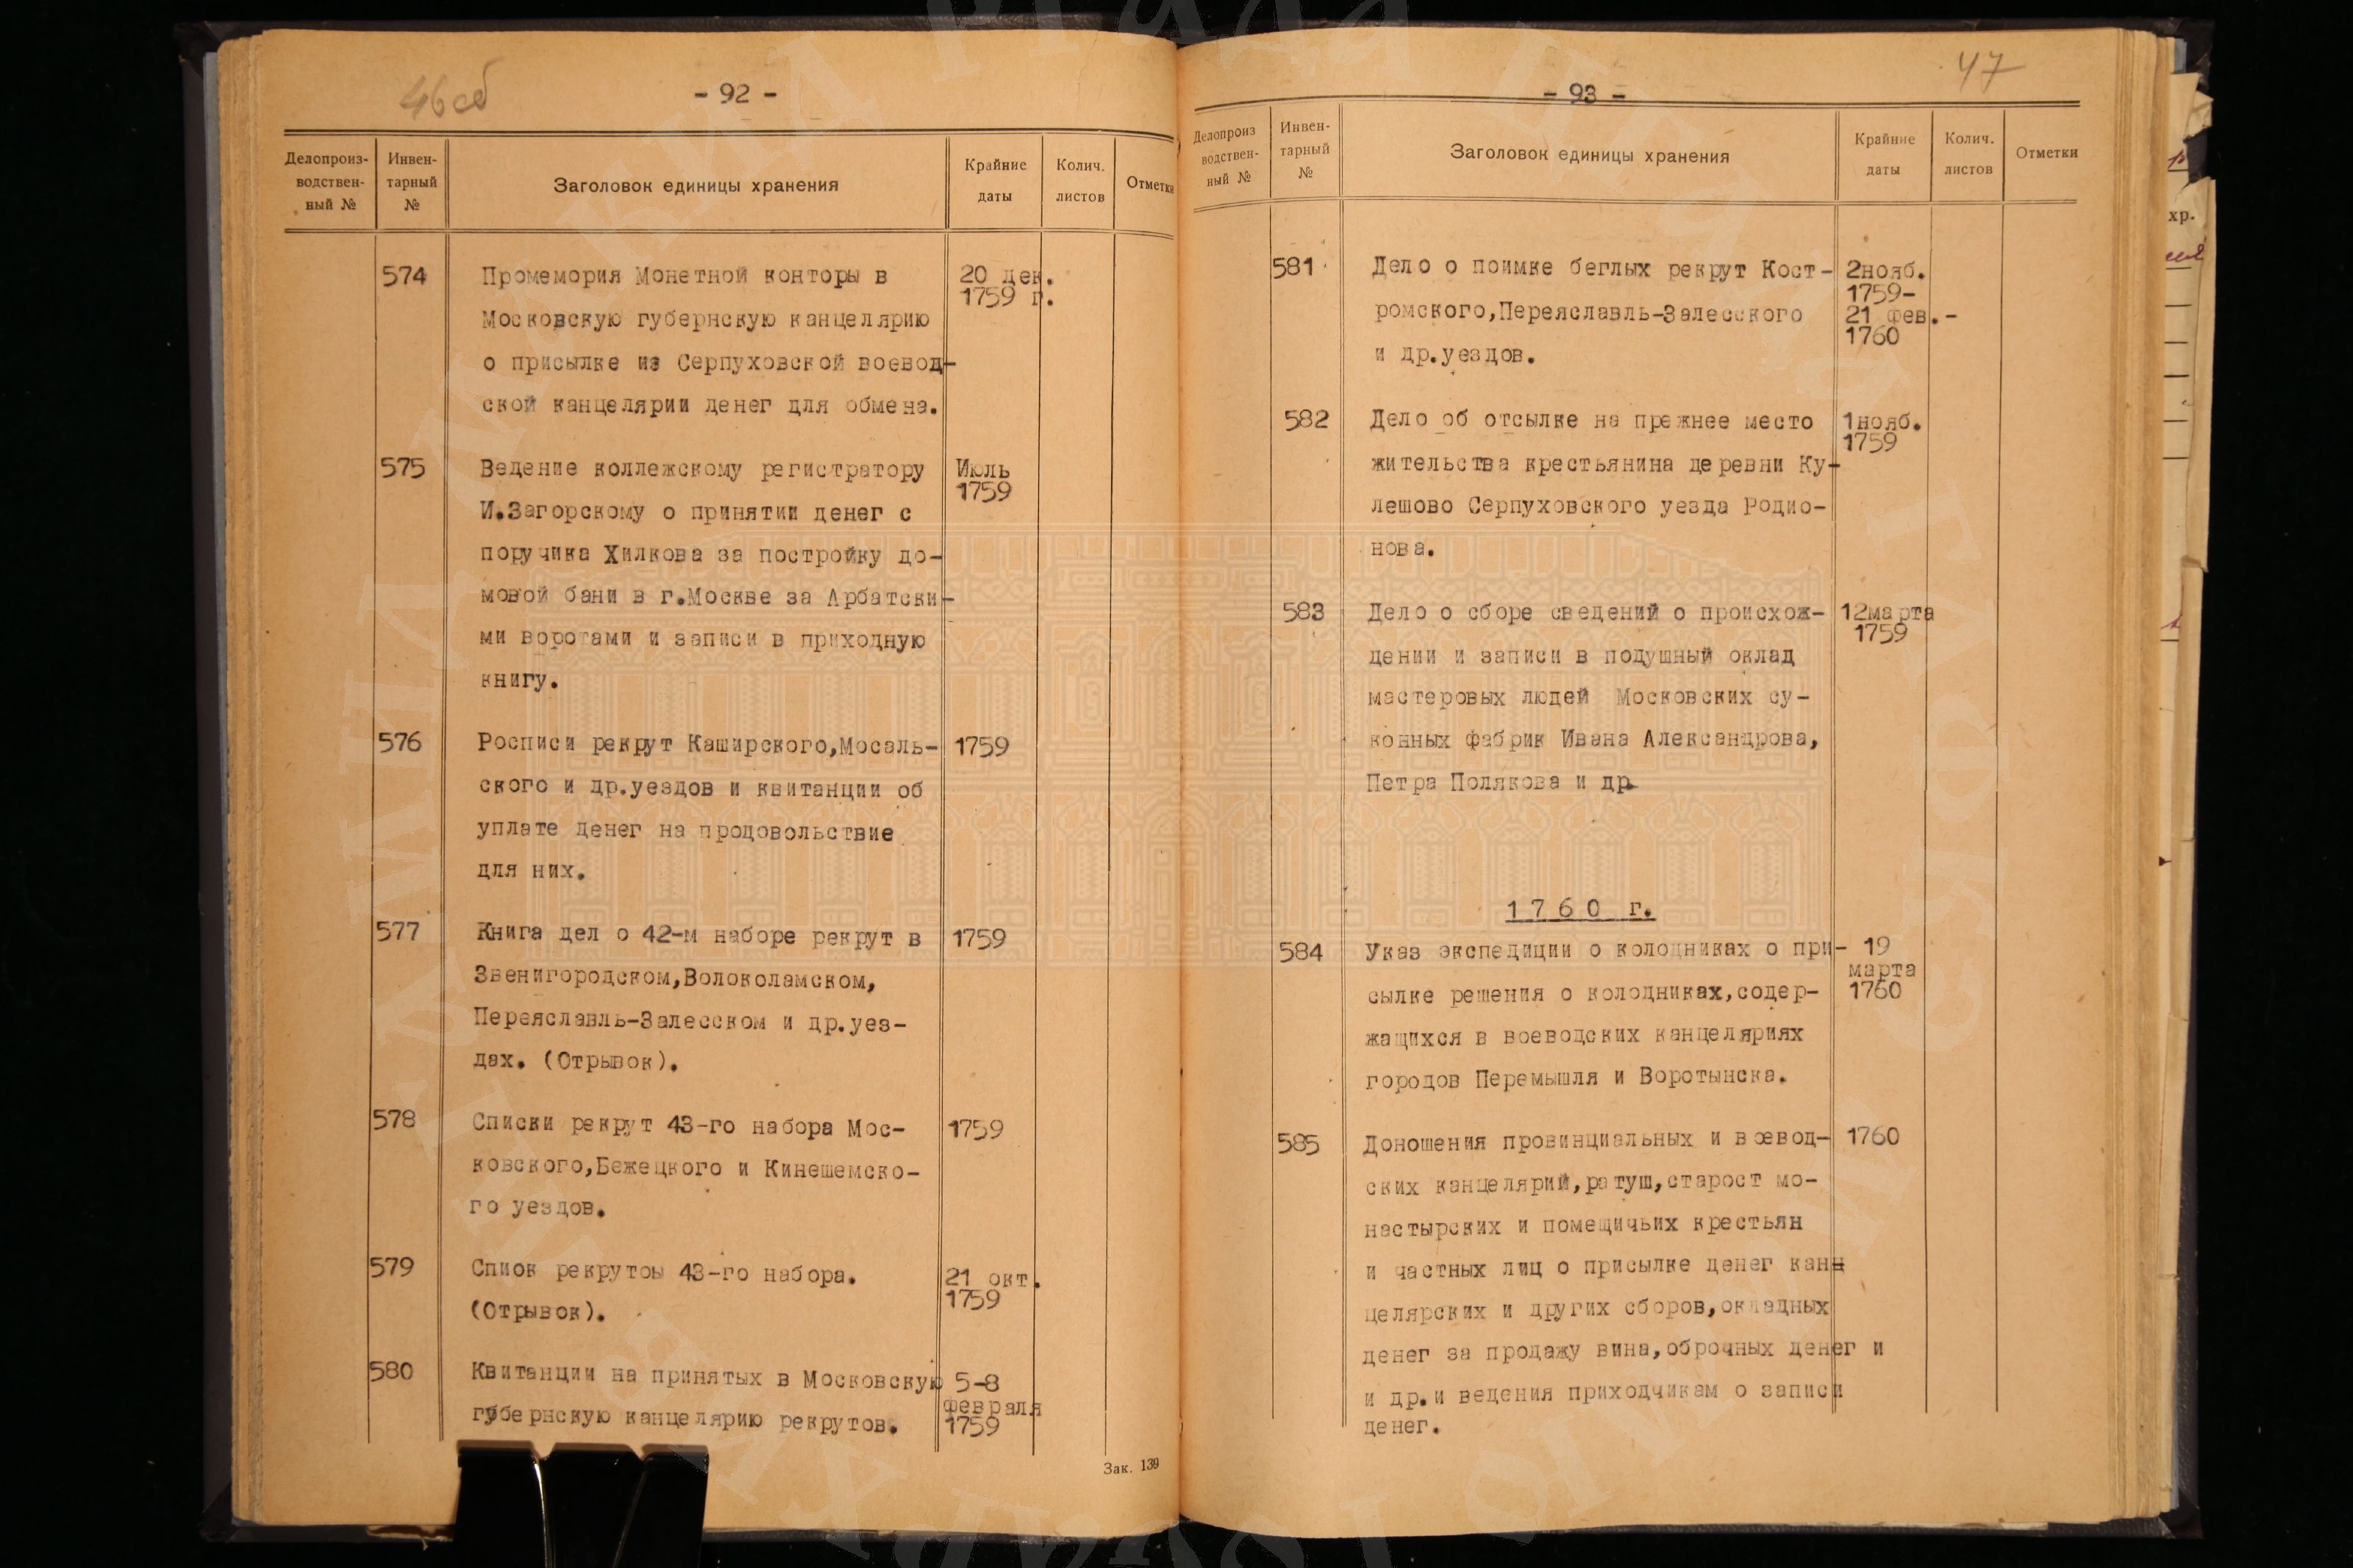 46об
- 92 -
Делопроиз-
водствен-
ный №
Инвен-
тарный
№
Заголовок единицы хранения
Крайние
даты
Колич.
листов
Отметки
574
Промемория Монетной конторы в
Московскую губернскую канцелярию
о присылке из Серпуховской воевод-
ской канцелярии денег для обмена.
20 дек.
1759 г.
575
Ведение коллежскому регистратору
И.Загорскому о принятии денег с
поручика Хилкова за постройку до-
мовой бани в г.Москве за Арбатски-
ми воротами и записи в приходную
книгу.
Июль
1759
576
Росписи рекрут Каширского,Мосаль-
ского и др.уездов и квитанции об
уплате денег на продовольствие
для них.
1759
577
Книга дел о 42-м наборе рекрут в
Звенигородском,Волоколамском,
Переяславль-Залесском и др.уез-
дах. (Отрывок).
1759
578
Списки рекрут 43-го набора Мос-
ковского,Бежецкого и Кинешемско-
го уездов.
1759
579
Спиок рекрутов 43-го набора.
(Отрывок).
21 окт.
1759
580
Квитанции на принятых в Московскую
губернскую канцелярию рекрутов.
5-8
февраля
1759
Зак. 139
47
- 93 -
Делопроиз
водствен-
ный №
Инвен-
тарный
№
Заголовок единицы хранения
Крайние
даты
Колич.
листов
Отметки
581
Дело о поимке беглых рекрут Кост-
ромского,Переяславль-Залесского
и др.уездов.
2нояб.
1759-
21 фев.-
1760
582
Дело об отсылке на прежнее место
жительства крестьянина деревни Ку-
лешово Серпуховского уезда Родио-
нова.
1нояб.
1759
583
Дело о сборе сведений о происхож-
дении и записи в подушный оклад
мастеровых людей Московских су-
конных фабрик Ивана Александрова,
Петра Полякова и др.
12марта
1759
1760 г.
584
Указ экспедиции о колодниках о при-
сылке решения о колодниках,содер-
жащихся в воеводских канцеляриях
городов Перемышля и Воротынска.
19
марта
1760
585
Доношения провинциальных и воевод-
ских канцелярий,ратуш,старост мо-
настырских и помещичьих крестьян
и частных лиц о присылке денег кан-
целярских и других сборов,окладных
денег за продажу вина,оброчных денег и
и др.и ведения приходчикам о записи
денег.
1760
хр.